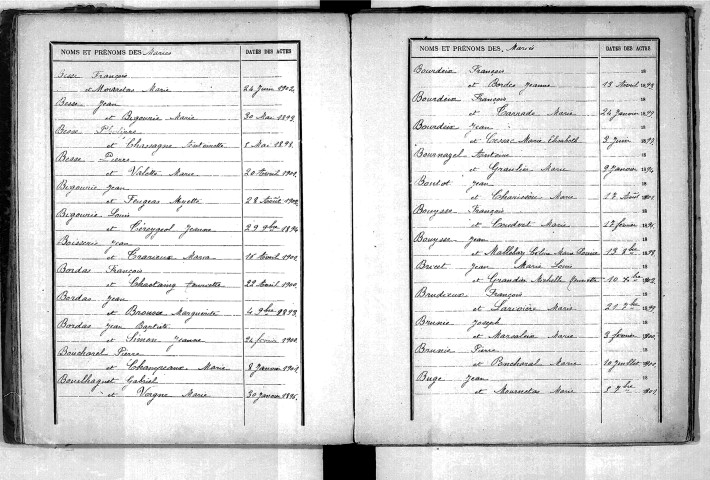 NOMS ET PRÉNOMS DES Mariés DATES DES ACTES
Besse François
et Mournetas Marie 24 Juin 1902
Besse Jean
et Bigourie Marie 30 Mai 1899
Besse Pierre
et Chassagne Antoinette 8 Mai 1898
Besse Pierre
et Virlotte Marie 20 Avril 1901
Bigourie Jean
et Feugeas Myette 28 Août 1902
Bigourie Louis
et Céreygeol Jeanne 29 9bre 1894
Boisserie Jean
et Gravieux Maria 16 Avril 1900
Bordas François
et Chastaing Henriette 22 Avril 1900
Bordas Jean
et Broussi Marguerite 4 9bre 1899
Bordas Jean Baptiste
et Simon Jeanne 24 février 1900
Boucharel Pierre
et Champeaux Marie 8 Janvier 1901
Bouilhaguet Gabriel
et Vergne Marie 30 Janvier 1896
NOMS ET PRÉNOMS DES Mariés DATES DES ACTES
Bourdeix François 18
et Bordes Jeanne 13 Avril 1899
Bourdeix François 18
et Carnade Marie 24 Janvier 1899
Bourdeix Jean 18
et Marie Elisabeth 3 Juin
Bournazel Antoine 18
et Graulier Marie 9 Janvier
Boutot Jean 18
et Marie 17 Août
Bouysse François 18
et Marie 17 février
Bouysse Jean 18
et Marie 13 8bre 1898
Brivet Jean Marie Louis 18
et 10 Xbre 1902
Brudieux François 18
et Larivière Marie 21 7bre 1899
Brunie Joseph 18
et Marie 3 février 1900
Brunie Pierre 18
et Poncharal Marie 10 Juillet 1900
Buge Jean 18
et Mournetas Marie 8 7bre 1901